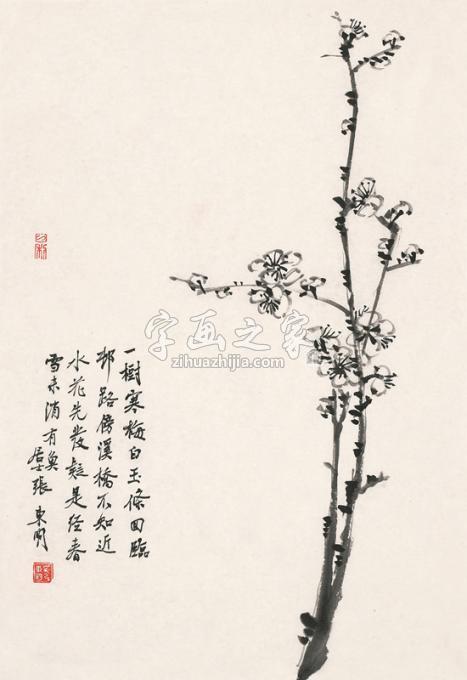 一樹寒梅白玉條回臨
邨路傍溪橋不知近
水花先發疑是經春
雪未消有奐
居士張東
字画之家
zihuazhijia.com